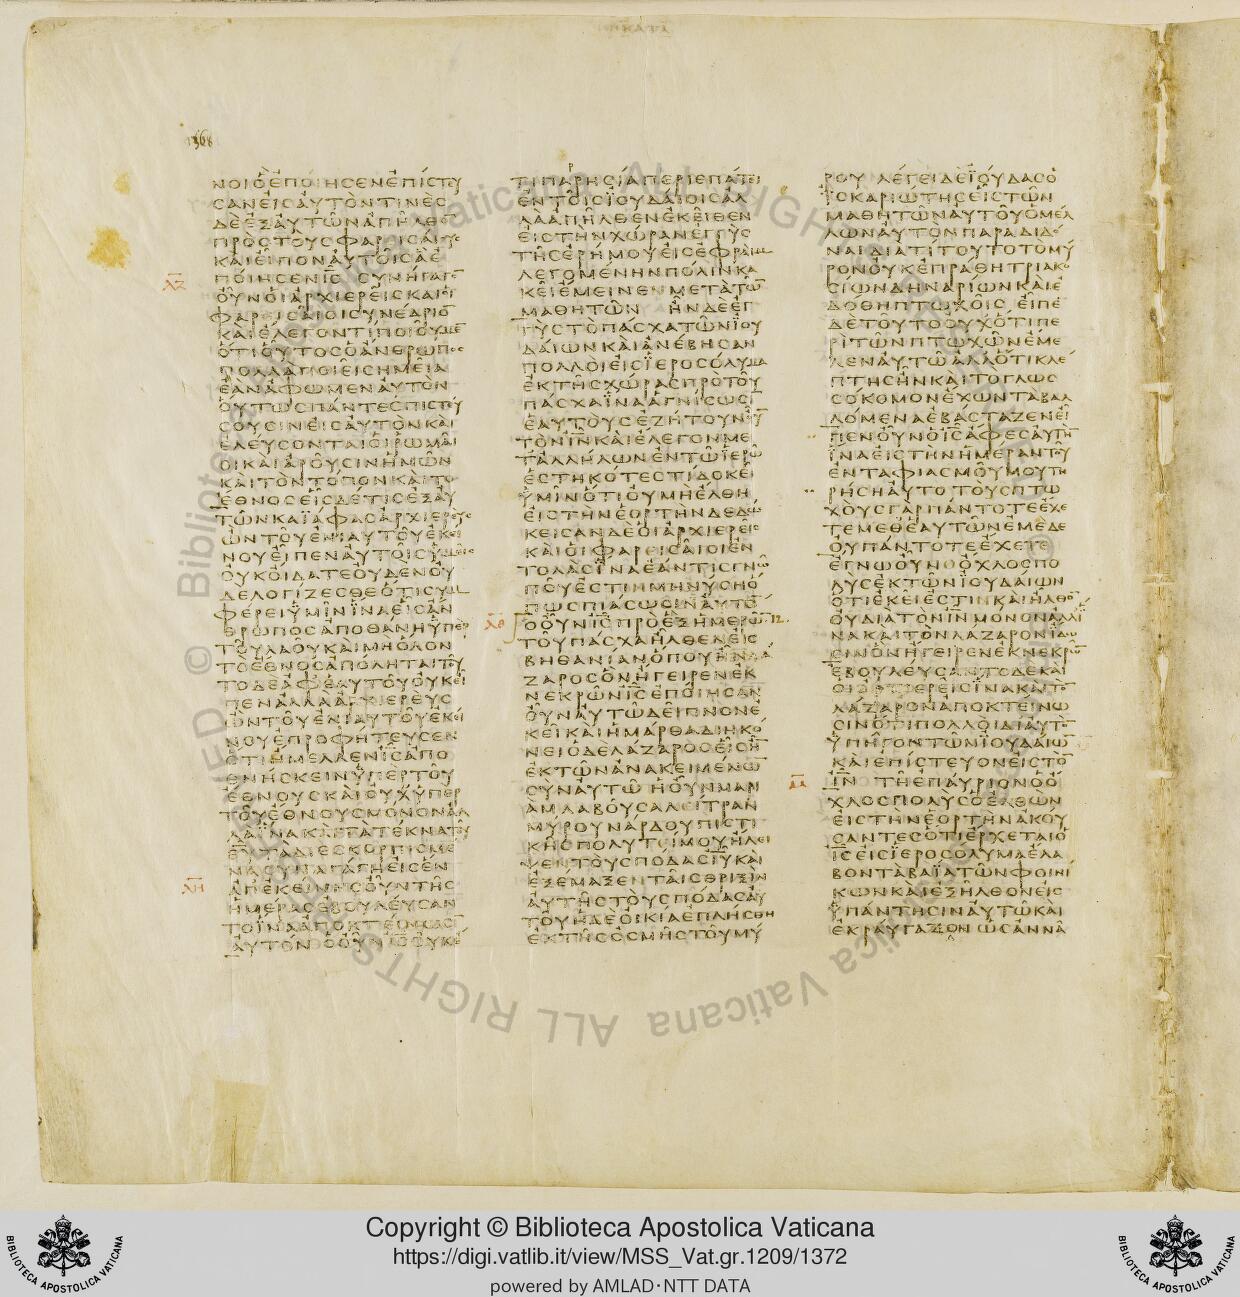 1368
ΝΟΙΟΕΠΟΙΗCΕΝΕΠΙCΤΕΥ
CΑΝΕΙCΑΥΤΟΝΤΙΝΕC
ΔΕΕΞΑΥΤΩΝΑΠΗΛΘΟ̅
ΠΡΟCΤΟΥCΦΑΡΕΙCΑΙΟΥC
ΚΑΙΕΙΠΟΝΑΥΤΟΙCΑΕ
ΛΖ ΠΟΙΗCΕΝΙ̅C̅ CΥΝΗΓΑΓΟ̅
ΟΥΝΟΙΑΡΧΙΕΡΕΙCΚΑΙΟΙ
ΦΑΡΕΙCΑΙΟΙCΥΝΕΔΡΙΟ̅
ΚΑΙΕΛΕΓΟΝΤΙΠΟΙΟΥΜΕ̅
ΟΤΙΟΥΤΟCΟΑΝΘΡΩΠΟC
ΠΟΛΛΑΠΟΙΕΙCΗΜΕΙΑ
ΕΑΝΑΦΩΜΕΝΑΥΤΟΝ
ΟΥΤΩCΠΑΝΤΕCΠΙCΤΕΥ
CΟΥCΙΝΕΙCΑΥΤΟΝΚΑΙ
ΕΛΕΥCΟΝΤΑΙΟΙΡΩΜΑΙ
ΟΙΚΑΙΑΡΟΥCΙΝΗΜΩΝ
ΚΑΙΤΟΝΤΟΠΟΝΚΑΙΤΟ
ΕΘΝΟCΕΙCΔΕΤΙCΕΞΑΥ
ΤΩΝΚΑΪΑΦΑCΑΡΧΙΕΡΕΥC
ΩΝΤΟΥΕΝΙΑΥΤΟΥΕΚΕΙ
ΝΟΥΕΙΠΕΝΑΥΤΟΙCΥΜΕΙC
ΟΥΚΟΙΔΑΤΕΟΥΔΕΝΟΥ
ΔΕΛΟΓΙΖΕCΘΕΟΤΙCΥΜ
ΦΕΡΕΙΥΜΙΝΪΝΑΕΙCΑΝ
ΘΡΩΠΟCΑΠΟΘΑΝΗΥΠΕΡ
ΤΟΥΛΑΟΥΚΑΙΜΗΟΛΟΝ
ΤΟΕΘΝΟCΑΠΟΛΗΤΑΙΤΟΥ
ΤΟΔΕΑΦΕΑΥΤΟΥΟΥΚΕΙ
ΠΕΝΑΛΛΑΑΡΧΙΕΡΕΥC
ΩΝΤΟΥΕΝΙΑΥΤΟΥΕΚΕΙ
ΝΟΥΕΠΡΟΦΗΤΕΥCΕΝ
ΟΤΙΗΜΕΛΛΕΝΙ̅C̅ΑΠΟ
ΘΝΗCΚΕΙΝΫΠΕΡΤΟΥ
ΕΘΝΟΥCΚΑΙΟΥΧΫΠΕΡ
ΤΟΥΕΘΝΟΥCΜΟΝΟΝΑΛ
ΛΑΪΝΑΚΑΙΤΑΤΕΚΝΑΤΟΥ
Θ̅Υ̅ΤΑΔΙΕCΚΟΡΠΙCΜΕ
ΝΑCΥΝΑΓΑΓΗΕΙCΕΝ
ΛΗ ΑΠΕΚΕΙΝΗCΟΥΝΤΗC
ΗΜΕΡΑCΕΒΟΥΛΕΥCΑΝ
ΤΟΪΝΑΑΠΟΚΤΕΙΝΩCΙ
ΑΥΤΟΝΟΟΥΝΙ̅C̅ΟΥΚΕ
ΤΙΠΑΡΗCΙΑΠΕΡΙΕΠΑΤΕΙ
ΕΝΤΟΙCΪΟΥΔΑΙΟΙCΑΛ
ΛΑΑΠΗΛΘΕΝΕΚΕΙΘΕΝ
ΕΙCΤΗΝΧΩΡΑΝΕΓΓΥC
ΤΗCΕΡΗΜΟΥΕΙCΕΦΡΑΙΜ
ΛΕΓΟΜΕΝΗΝΠΟΛΙΝΚΑ
ΚΕΙΕΜΕΙΝΕΝΜΕΤΑΤΩ̅
ΜΑΘΗΤΩΝ ΗΝΔΕΕΓ
ΓΥCΤΟΠΑCΧΑΤΩΝΪΟΥ
ΔΑΙΩΝΚΑΙΑΝΕΒΗCΑΝ
ΠΟΛΛΟΙΕΙCΪΕΡΟCΟΛΥΜΑ
ΕΚΤΗCΧΩΡΑCΠΡΟΤΟΥ
ΠΑCΧΑΪΝΑΑΓΝΙCΩCΙ̅
ΕΑΥΤΟΥCΕΖΗΤΟΥΝΟΥ̅
ΤΟΝΙ̅Ν̅ΚΑΙΕΛΕΓΟΝΜΕ
ΤΑΛΛΗΛΩΝΕΝΤΩΪΕΡΩ
ΕCΤΗΚΟΤΕCΤΙΔΟΚΕΙ
ΫΜΙΝΟΤΙΟΥΜΗΕΛΘΗ
ΕΙCΤΗΝΕΟΡΤΗΝΔΕΔΩ
ΚΕΙCΑΝΔΕΟΙΑΡΧΙΕΡΕΙC
ΚΑΙΟΙΦΑΡΕΙCΑΙΟΙΕΝ
ΤΟΛΑCΪΝΑΕΑΝΤΙCΓΝΩ
ΠΟΥΕCΤΙΜΗΝΥCΗΟ
ΠΩCΠΙΑCΩCΙΝΑΥΤΟ̅
ΛΘ ΟΟΥΝΙ̅C̅ΠΡΟΕΞΗΜΕΡΩ̅ 12.
ΤΟΥΠΑCΧΑΗΛΘΕΝΕΙC
ΒΗΘΑΝΙΑΝΟΠΟΥΗΝΛΑ
ΖΑΡΟCΟΝΗΓΕΙΡΕΝΕΚ
ΝΕΚΡΩΝΙ̅C̅ΕΠΟΙΗCΑΝ
ΟΥΝΑΥΤΩΔΕΙΠΝΟΝΕ
ΚΕΙΚΑΙΗΜΑΡΘΑΔΙΗΚΟ
ΝΕΙΟΔΕΛΑΖΑΡΟCΕΙCΗ̅
ΕΚΤΩΝΑΝΑΚΕΙΜΕΝΩ̅
CΥΝΑΥΤΩΗΟΥΝΜΑΡΙ
ΑΜΛΑΒΟΥCΑΛΕΙΤΡΑΝ
ΜΥΡΟΥΝΑΡΔΟΥΠΙCΤΙ
ΚΗCΠΟΛΥΤΙΜΟΥΗΛΕΙ
ΨΕΝΤΟΥCΠΟΔΑCΙ̅Υ̅ΚΑΙ
ΕΞΕΜΑΞΕΝΤΑΙCΘΡΙΞΙΝ
ΑΥΤΗCΤΟΥCΠΟΔΑCΑΥ
ΤΟΥΗΔΕΟΙΚΙΑΕΠΛΗCΘΗ
ΕΚΤΗCΟCΜΗCΤΟΥΜΥ
ΡΟΥ ΛΕΓΕΙΔΕΪΟΥΔΑCΟ
ΪCΚΑΡΙΩΤΗCΕΙCΤΩΝ
ΜΑΘΗΤΩΝΑΥΤΟΥΟΜΕΛ
ΛΩΝΑΥΤΟΝΠΑΡΑΔΙΔΟ
ΝΑΙΔΙΑΤΙΤΟΥΤΟΤΟΜΥ
ΡΟΝΟΥΚΕΠΡΑΘΗΤΡΙΑΚΟ
CΙΩΝΔΗΝΑΡΙΩΝΚΑΙΕ
ΔΟΘΗΠΤΩΧΟΙC ΕΙΠΕ
ΔΕΤΟΥΤΟΟΥΧΟΤΙΠΕ
ΡΙΤΩΝΠΤΩΧΩΝΕΜΕ
ΛΕΝΑΥΤΩΑΛΛΟΤΙΚΛΕ
ΠΤΗCΗΝΚΑΙΤΟΓΛΩC
CΟΚΟΜΟΝΕΧΩΝΤΑΒΑΛ
ΛΟΜΕΝΑΕΒΑCΤΑΖΕΝΕΙ
ΠΕΝΟΥΝΟΙ̅C̅ΑΦΕCΑΥΤΗ̅
ΪΝΑΕΙCΤΗΝΗΜΕΡΑΝΤΟΥ
ΕΝΤΑΦΙΑCΜΟΥΜΟΥΤΗ
ΡΗCΗΑΥΤΟΤΟΥCΠΤΩ
ΧΟΥCΓΑΡΠΑΝΤΟΤΕΕΧΕ
ΤΕΜΕΘΕΑΥΤΩΝΕΜΕΔΕ
ΟΥΠΑΝΤΟΤΕΕΧΕΤΕ
ΕΓΝΩΟΥΝΟΟΧΛΟCΠΟ
ΛΥCΕΚΤΩΝΪΟΥΔΑΙΩΝ
ΟΤΙΕΚΕΙΕCΤΙΝΚΑΙΗΛΘΟ̅
ΟΥΔΙΑΤΟΝΙ̅Ν̅ΜΟΝΟΝΑΛΛΪ
ΝΑΚΑΙΤΟΝΛΑΖΑΡΟΝΪΔΩ
CΙΝΟΝΗΓΕΙΡΕΝΕΚΝΕΚΡΩ̅
ΕΒΟΥΛΕΥCΑΝΤΟΔΕΚΑΙ
ΟΙΑΡΧΙΕΡΕΙCΪΝΑΚΑΙΤΟ̅
ΛΑΖΑΡΟΝΑΠΟΚΤΕΙΝΩ
CΙΝΟΤΙΠΟΛΛΟΙΔΙΑΥΤΟ̅
ΫΠΗΓΟΝΤΩΝΪΟΥΔΑΙΩ̅
ΚΑΙΕΠΙCΤΕΥΟΝΕΙCΤΟ̅
Μ Ι̅Ν̅ ΤΗΕΠΑΥΡΙΟΝΟΟ
ΧΛΟCΠΟΛΥCΟΕΛΘΩΝ
ΕΙCΤΗΝΕΟΡΤΗΝΑΚΟΥ
CΑΝΤΕCΟΤΙΕΡΧΕΤΑΙΟ
Ι̅C̅ΕΙCΪΕΡΟCΟΛΥΜΑΕΛΑ
ΒΟΝΤΑΒΑΪΑΤΩΝΦΟΙΝΙ
ΚΩΝΚΑΙΕΞΗΛΘΟΝΕΙC
ΫΠΑΝΤΗCΙΝΑΥΤΩΚΑΙ
ΕΚΡΑΥΓΑΖΟΝΩCΑΝΝΑ
© Biblioteca Apostolica Vaticana ALL RIGHTS RESERVED
Copyright © Biblioteca Apostolica Vaticana
https://digi.vatlib.it/view/MSS_Vat.gr.1209/1372
powered by AMLAD·NTT DATA
BIBLIOTECA APOSTOLICA VATICANA
BIBLIOTECA APOSTOLICA VATICANA